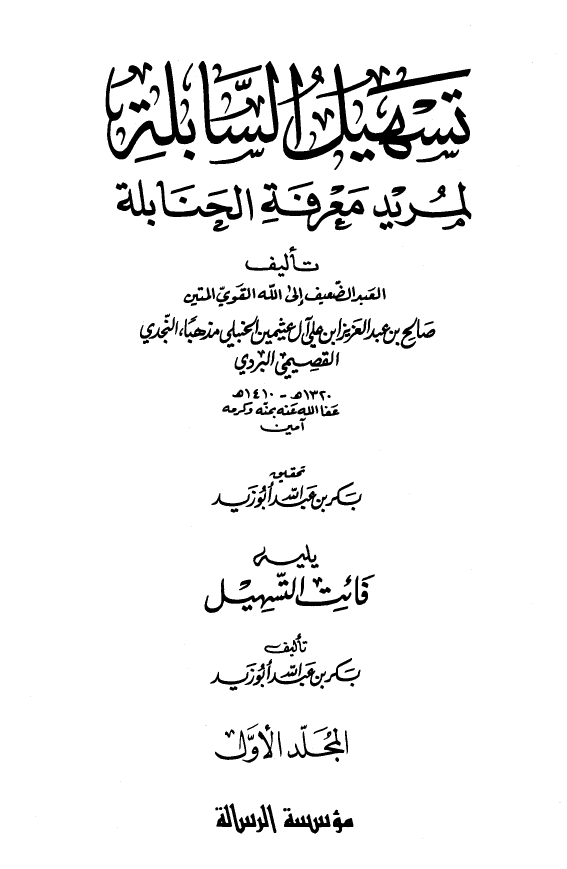 تسهيل السَّابلة
لمُريد مَعْرفَةِ الحَنَابلة
تأليف
العبد الضّعيف إلى الله القويّ المتين
صالح بن عبد العزيز ابن علي آل عثيمين الحنبلي مذهبًا، النّجدي
القصيمي البُردي
١٣٢٠هـ - ١٤١٠هـ
عفا الله عنه بمنّه وكرمه
آمين
تحقيق
بَكر بن عَبد الله أبُوزَيد
يليه
فَائِت التّسهِيْل
تأليف
بَكر بن عَبد الله أبُوزَيد
المجُلّد الأوّل
مؤسسة الرسالة